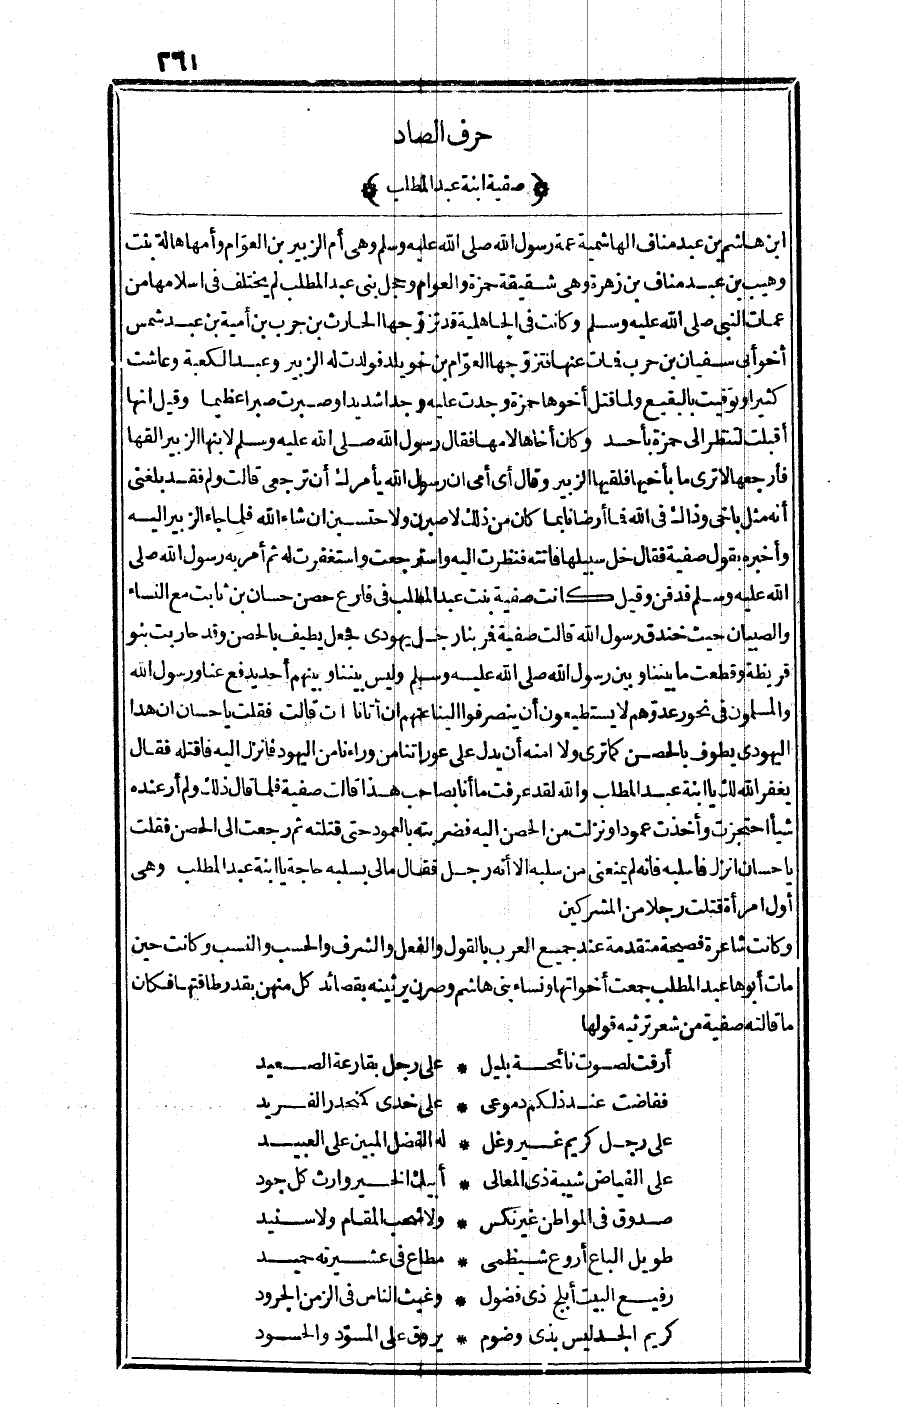 ٢٦١
حرف الصاد
﴿ صفية ابنة عبد المطلب ﴾
ابن هاشم بن عبد مناف الهاشمية عمة رسول الله صلى الله عليه وسلم وهى أم الزبير بن العوّام وأمها هالة بنت
وهيب بن عبد مناف بن زهرة وهى شقيقة حمزة والعوام وحجل بنى عبد المطلب لم يختلف فى اسلامها من
عمات النبي صلى الله عليه وسلم وكانت فى الجاهلية قد تزوّجها الحارث بن حرب بن أمية بن عبد شمس
أخو أبى سفيان بن حرب فمات عنها فتزوّجها العوّام بن خويلد فولدت له الزبير وعبد الكعبة وعاشت
كثيرا وتوفيت بالبقيع ولما قتل أخوها حمزة وجدت عليه وجدا شديدا وصبرت صبرا عظيما وقيل انها
أقبلت لتنظر الى حمزة بأحد وكان أخاها لامها فقال رسول الله صلى الله عليه وسلم لابنها الزبير القها
فأرجعها لاترى ما بأخيها فلقيها الزبير وقال أى أمى ان رسول الله يأمرك أن ترجعى قالت ولم فقد بلغنى
أنه مثل باخى وذاك فى الله فما أرضانا بما كان من ذلك لاصبرن ولاحتسبن ان شاء الله فلما جاء الزبير اليه
وأخبره بقول صفية فقال خل سبيلها فأتته فنظرت اليه واسترجعت واستغفرت له ثم أمر به رسول الله صلى
الله عليه وسلم فدفن وقيل كانت صفية بنت عبد المطلب فى فارع حصن حسان بن ثابت مع النساء
والصبيان حيث خندق رسول الله قالت صفية فمر بنا رجل يهودى فجعل يطيف بالحصن وقد حاربت بنو
قريظة وقطعت ما بيننا وبين رسول الله صلى الله عليه وسلم وليس بيننا وبينهم أحد يدفع عنا ورسول الله
والمسلمون فى نحور عدوّهم لا يستطيعون أن ينصرفوا الينا عنهم ان أتانا ات قالت فقلت يا حسان ان هذا
اليهودى يطوف بالحصن كما ترى ولا امنه أن يدل على عوراتنا من وراءنا من اليهود فانزل اليه فاقتله فقال
يغفر الله لك يا ابنة عبد المطلب والله لقد عرفت ما أنا بصاحب هذا قالت صفية فلما قال ذلك ولم أر عنده
شيأ احتجزت وأخذت عمودا ونزلت من الحصن اليه فضربته بالعمود حتى قتلته ثم رجعت الى الحصن فقلت
يا حسان انزل فاسلبه فانه لم يمنعنى من سلبه الا أنه رجل فقال مالى بسلبه حاجة يا ابنة عبد المطلب وهى
أول امرأة قتلت رجلا من المشركين
وكانت شاعرة فصيحة متقدمة عند جميع العرب بالقول والفعل والشرف والحسب والنسب وكانت حين
مات أبوها عبد المطلب جمعت أخواتها ونساء بنى هاشم وصرن يرثينه بقصائد كل منهن بقدر طاقتها فكان
ما قالته صفية من شعر ترثيه قولها
أرقت لصوت نائحة بليل * على رجل بقارعة الصعيد
ففاضت عند ذلكم دموعى * على خدى كمنحدر الفريد
على رجل كريم غير وغل * له الفضل المبين على العبيد
على الفياض شيبة ذى المعالى * أبيك الخير وارث كل جود
صدوق فى المواطن غير نكس * ولا شخب المقام ولا سنيد
طويل الباع أروع شيظمى * مطاع فى عشيرته حميد
رفيع البيت أبلج ذى فضول * وغيث الناس فى الزمن الحرود
كريم الجد ليس بذى وضوم * يروق على المسوّد والحسود